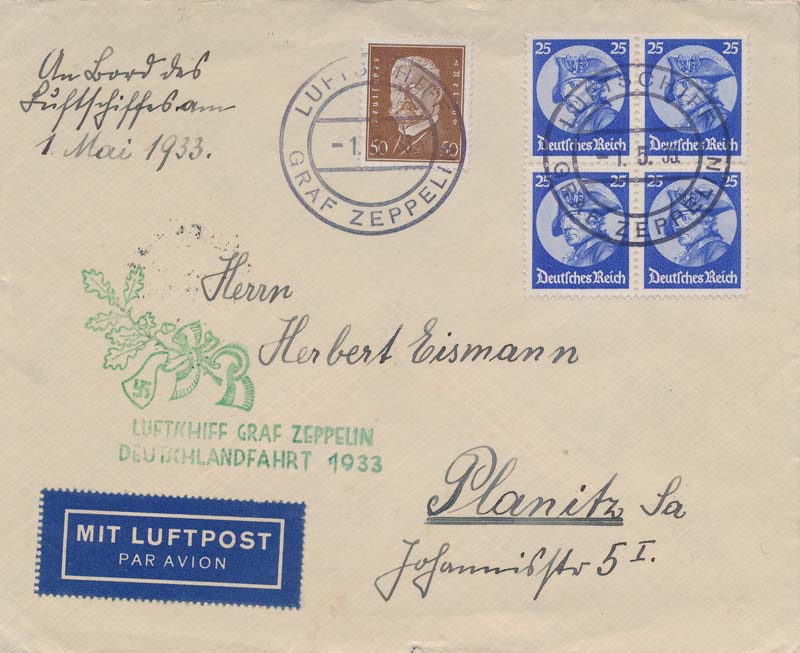 An Bord des
Luftschiffes am
1. Mai 1933.
LUFTSCHIFF
-1.
GRAF ZEPPELIN
Deutsches Reich
50 50
25 25
Deutsches Reich Deutsches Reich
25 25
Deutsches Reich Deutsches Reich
LUFTSCHIFF
-1. 5. 33.
GRAF ZEPPELIN
Herrn
Herbert Eismann
LUFTSCHIFF GRAF ZEPPELIN
DEUTSCHLANDFAHRT 1933
Planitz Sa
Johannisstr 5 I.
MIT LUFTPOST
PAR AVION